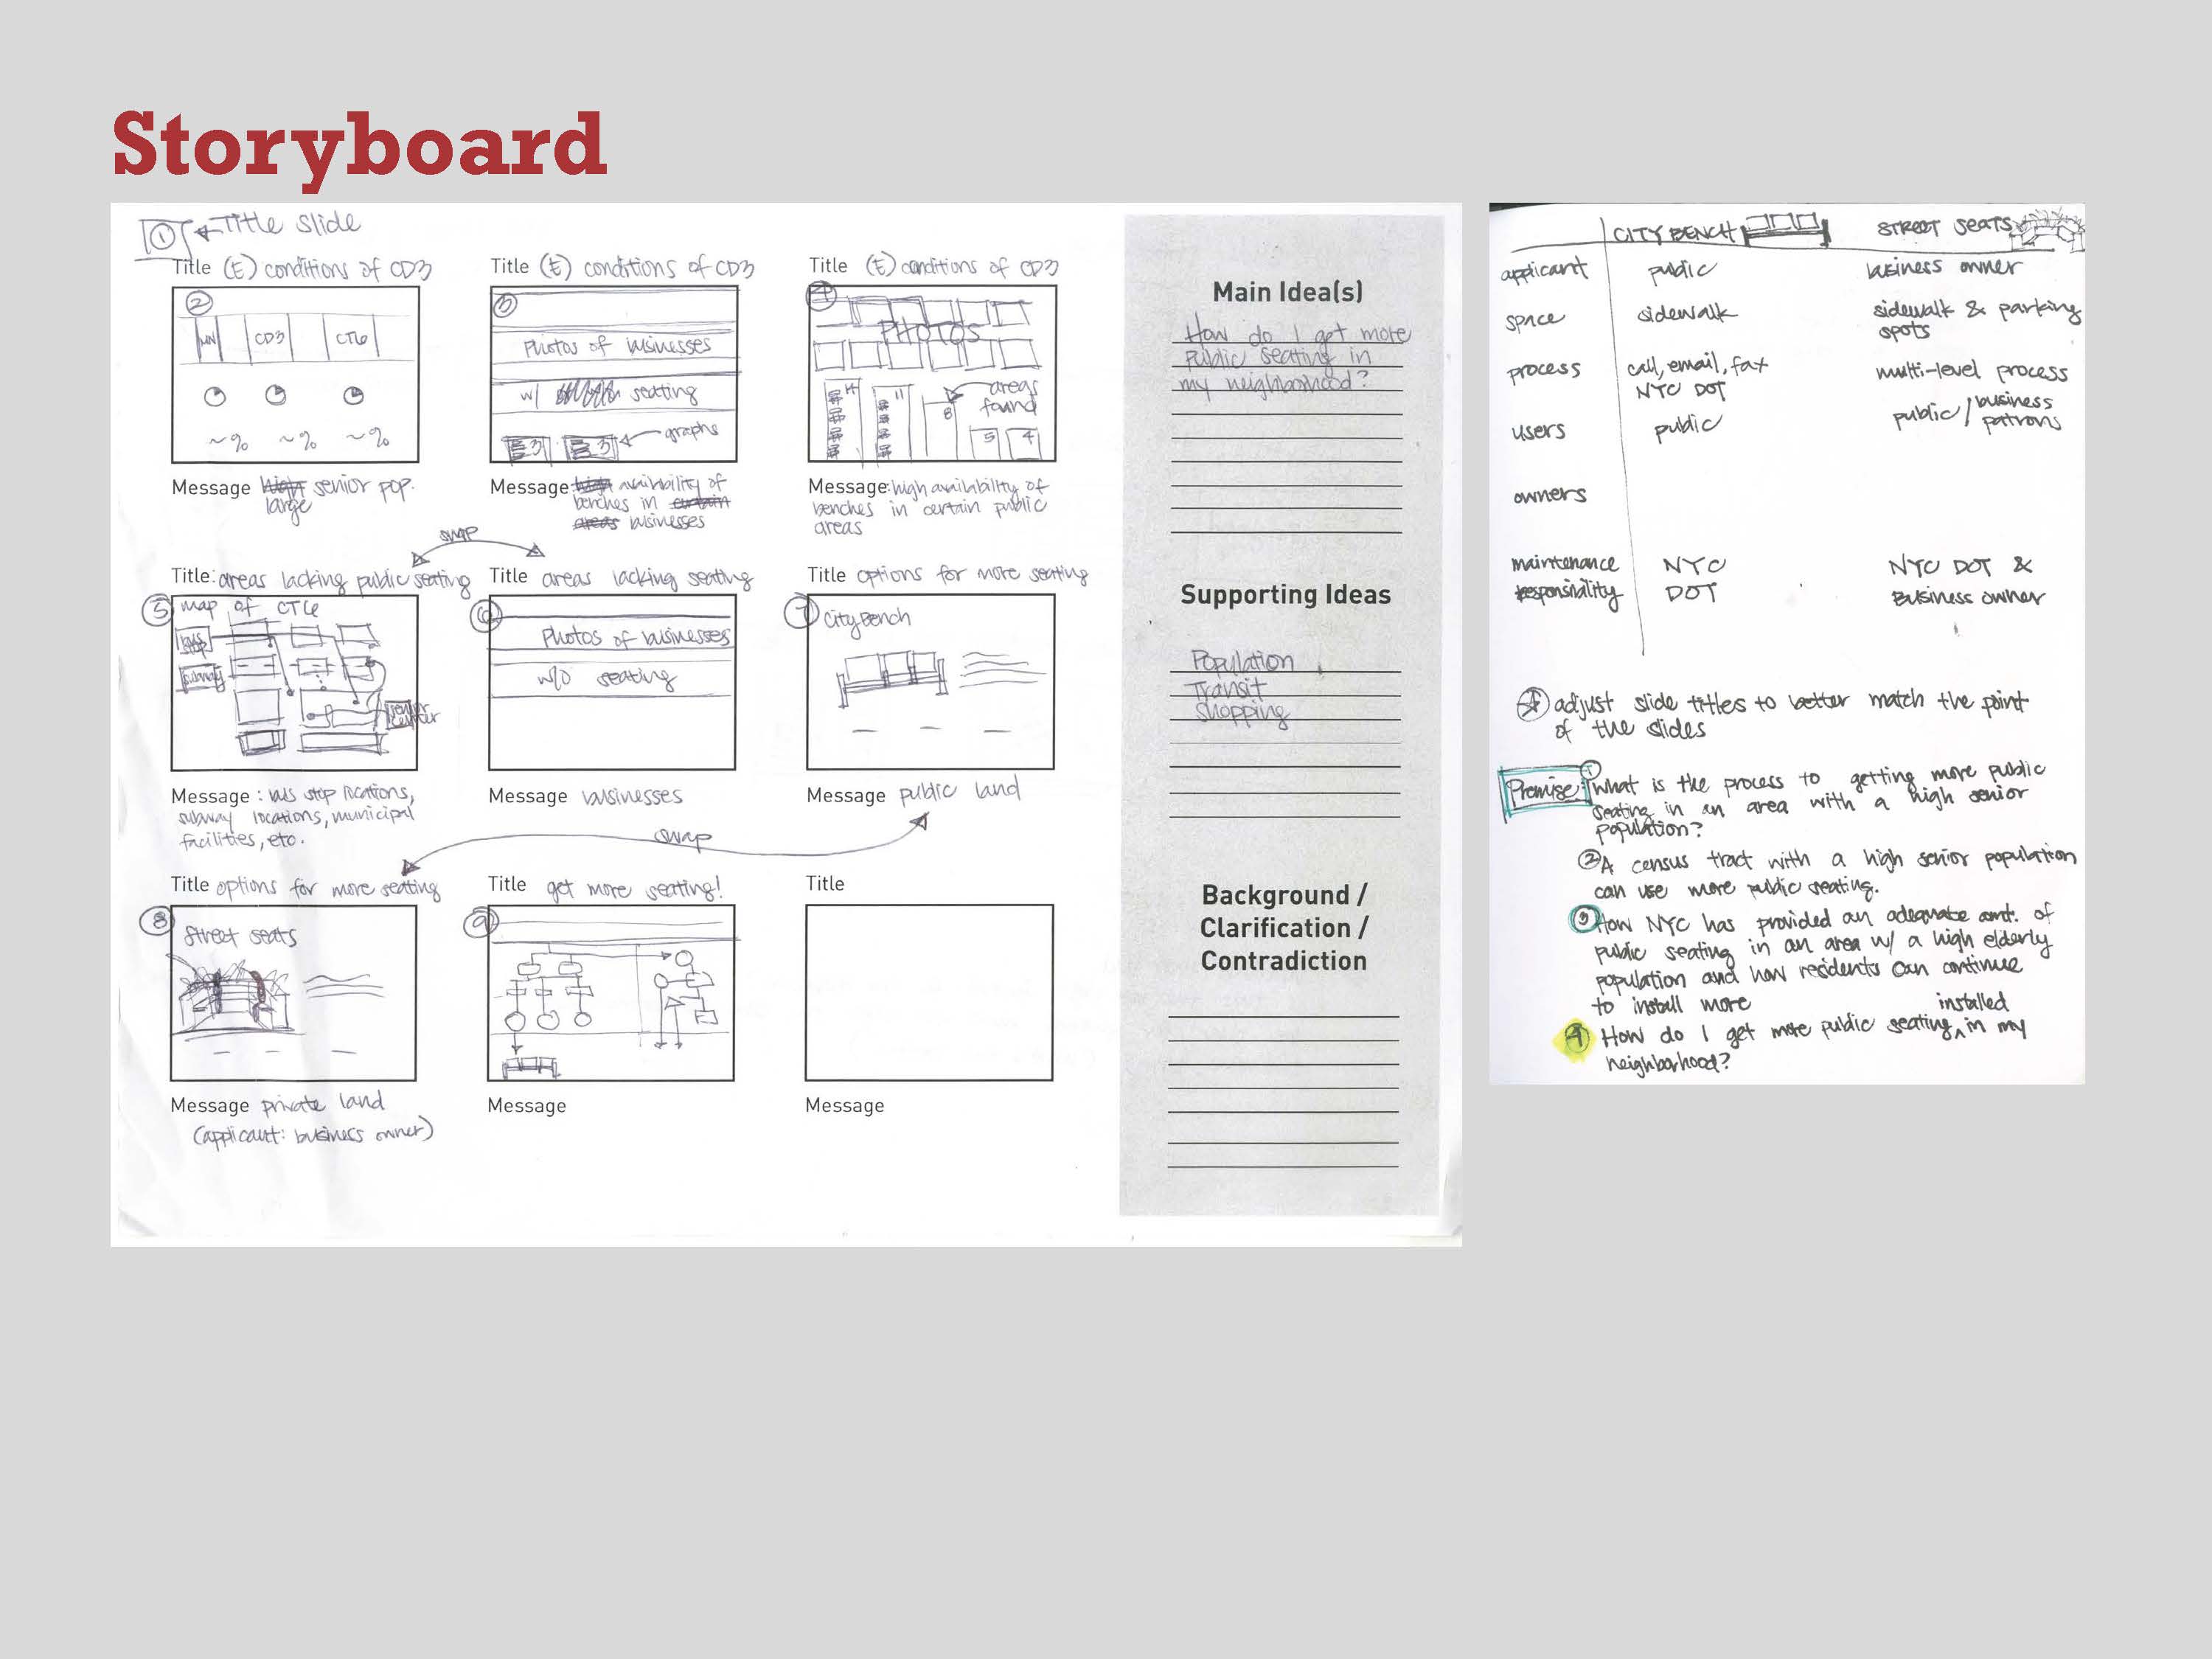 Storyboard
① ← Title slide
Title (E) conditions of CD3
②
CD3
CT6
~% ~% ~%
Message high large senior pop.
Title (E) conditions of CD3
③
Photos of businesses
w/ seating
graphs
Message: high availability of
benches in certain
areas businesses
Title (E) conditions of CD3
④
PHOTOS
areas
found
14
11
8
5
4
Message: high availability of
benches in certain public
areas
swap
Title: areas lacking public seating
⑤ map of CT6
bus
stop
subway
senior
center
Message: bus stop locations,
subway locations, municipal
facilities, etc.
Title areas lacking seating
⑥
Photos of businesses
w/o seating
Message businesses
Title options for more seating
⑦ CityBench
Message public land
swap
Title options for more seating
⑧ Street seats
Message private land
(applicant: business owner)
Title get more seating!
⑨
Message
Title
Message
Main Idea(s)
How do I get more
public seating in
my neighborhood?
Supporting Ideas
Population
Transit
Shopping
Background /
Clarification /
Contradiction
CITY BENCH STREET SEATS
applicant public business owner
space sidewalk sidewalk & parking
spots
process call, email, fax multi-level process
NYC DOT
users public public / business
patrons
owners
maintenance NYC NYC DOT &
responsibility DOT Business owner
adjust slide titles to better match the point
of the slides
Premise: ① What is the process to getting more public
seating in an area with a high senior
population?
② A census tract with a high senior population
can use more public seating.
③ How NYC has provided an adequate amt. of
public seating in an area w/ a high elderly
population and how residents can continue
to install more
installed
④ How do I get more public seating ^ in my
neighborhood?